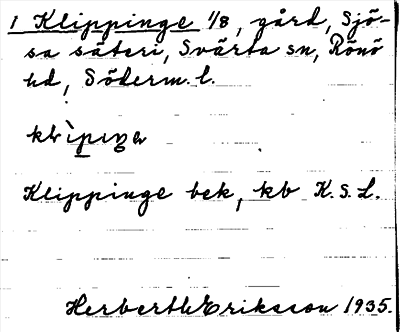 1 Klippinge 1/8, gård, Sjö-
sa säteri, Svärta sn, Rönö
hd, Söderm. l.
Klippinge bek, kb K.S.L.
Herberth Eriksson 1935.